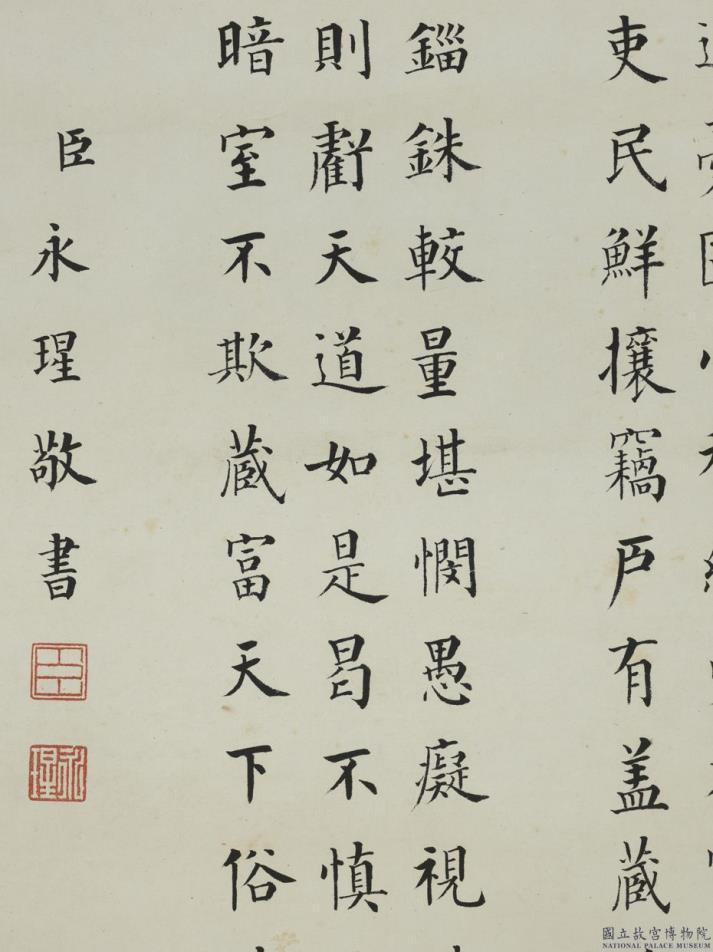 吏民鮮攘竊戶有盖蔵
錙銖較量堪憫愚癡視
則虧天道如是曷不慎
暗室不欺蔵富天下俗
臣永瑆敬書
臣
永瑆
國立故宮博物院
NATIONAL PALACE MUSEUM